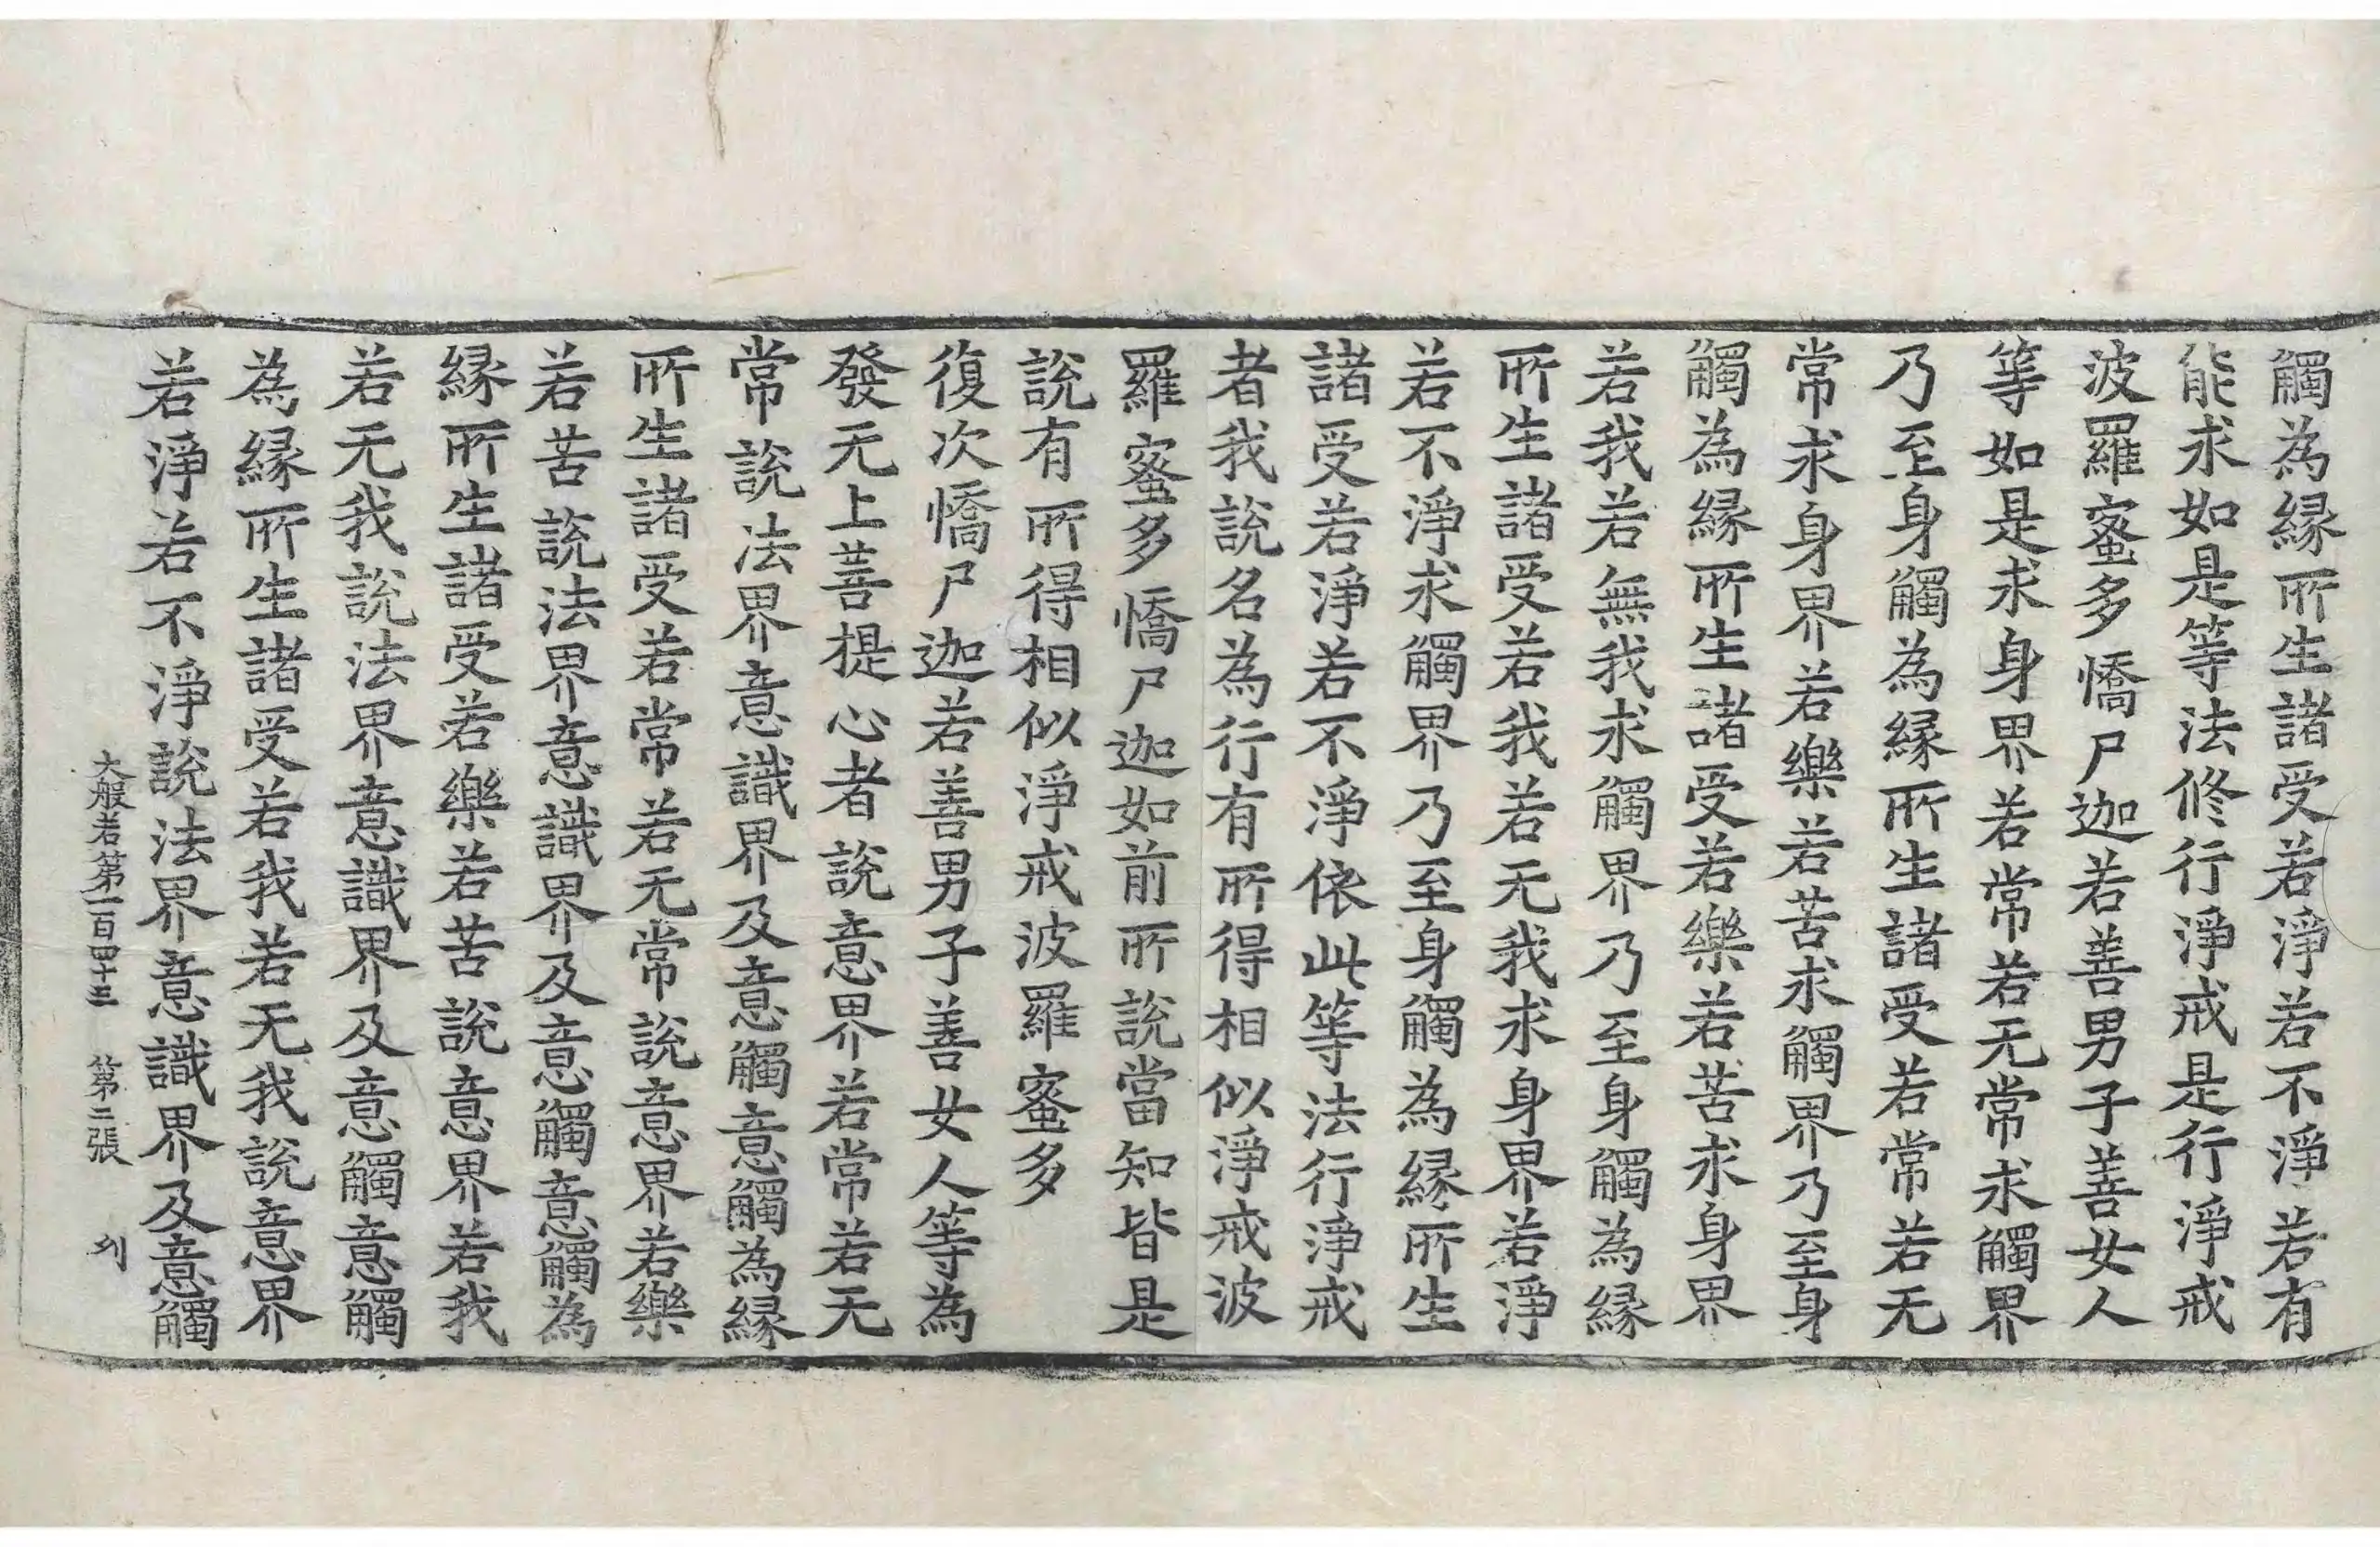 觸為縁所生諸受若淨若不淨若有
能求如是等法修行淨戒是行淨戒
波羅蜜多憍尸迦若善男子善女人
等如是求身界若常若无常求觸界
乃至身觸為縁所生諸受若常若无
常求身界若樂若苦求觸界乃至身
觸為縁所生諸受若樂若苦求身界
若我若無我求觸界乃至身觸為縁
所生諸受若我若无我求身界若淨
若不淨求觸界乃至身觸為縁所生
諸受若淨若不淨依此等法行淨戒
者我說名為行有所得相似淨戒波
羅蜜多憍尸迦如前所說當知皆是
說有所得相似淨戒波羅蜜多
復次憍尸迦若善男子善女人等為
發无上菩提心者說意界若常若无
常說法界意識界及意觸意觸為縁
所生諸受若常若无常說意界若樂
若苦說法界意識界及意觸意觸為
縁所生諸受若樂若苦說意界若我
若无我說法界意識界及意觸意觸
為縁所生諸受若我若无我說意界
若淨若不淨說法界意識界及意觸
大般若第一百四十三 第二張 列